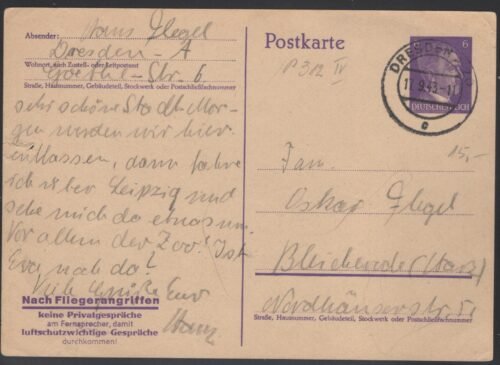 Absender: Hans Flegel
Dresden-A
Wohnort, auch Zustell- oder Leitpostamt
Goethe-Str. 6
Straße, Hausnummer, Gebäudeteil, Stockwerk oder Postschließfachnummer
sehr schöne Stadt. Mor-
gen werden wir hier
entlassen, dann fahre
ich über Leipzig und
sehe mich da etwas um.
Vor allem der Zoo! Ist
Eva noch da?
Viele Grüße Euer
Hans
Nach Fliegerangriffen
keine Privatgespräche
am Fernsprecher, damit
luftschutzwichtige Gespräche
durchkommen!
Postkarte
P 312 IV
6
DEUTSCHES REICH
DRESDEN
17.9.43-11
c
15,-
Fam.
Oskar Flegel
Bleicherode (Harz)
Nordhäuserstr.
Straße, Hausnummer, Gebäudeteil, Stockwerk oder Postschließfachnummer